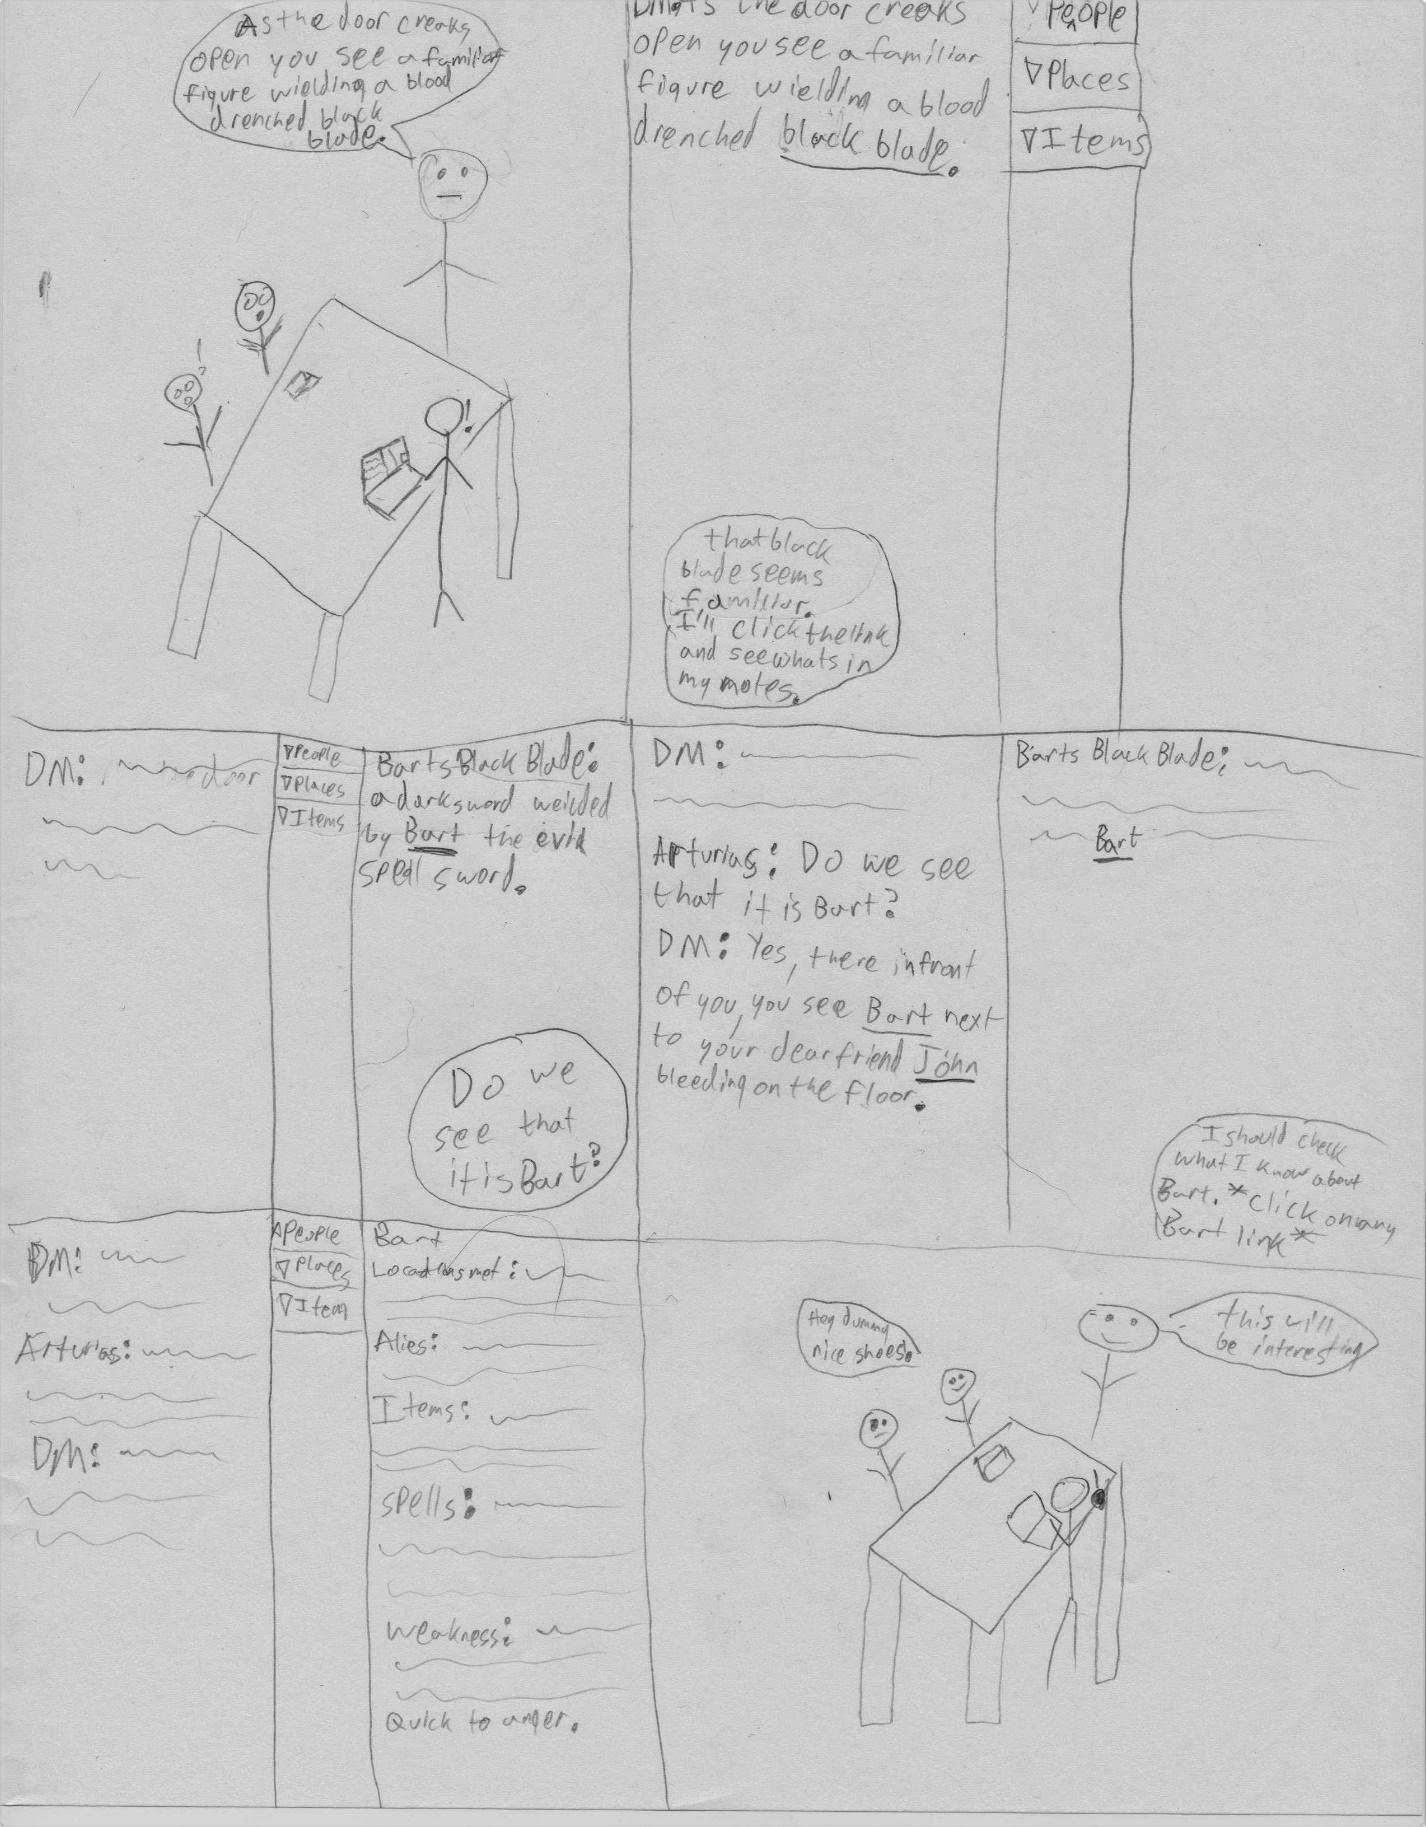 As the door creaks
open you see a familiar
figure wielding a blood
drenched black
blade.
DM: As the door creaks
open you see a familiar
figure wielding a blood
drenched black blade.
▽People
▽Places
▽Items
!
!
that black
blade seems
familiar.
I'll click the link
and see whats in
my notes.
DM: door
▽People
▽Places
▽Items
Barts Black Blade:
a dark sword weilded
by Bart the evil
spell sword.
Do we
see that
it is Bart?
DM:
Arturias: Do we see
that it is Bart?
DM: Yes, there infront
of you, you see Bart next
to your dear friend John
bleeding on the floor.
Barts Black Blade:
Bart
I should check
what I know about
Bart. *click on any
Bart link*
DM:
Arturias:
DM:
△People
▽Places
▽Item
Bart
Locations met:
Alies:
Items:
spells:
weakness:
Quick to anger.
Hey dummy
nice shoes.
this will
be interesting
!